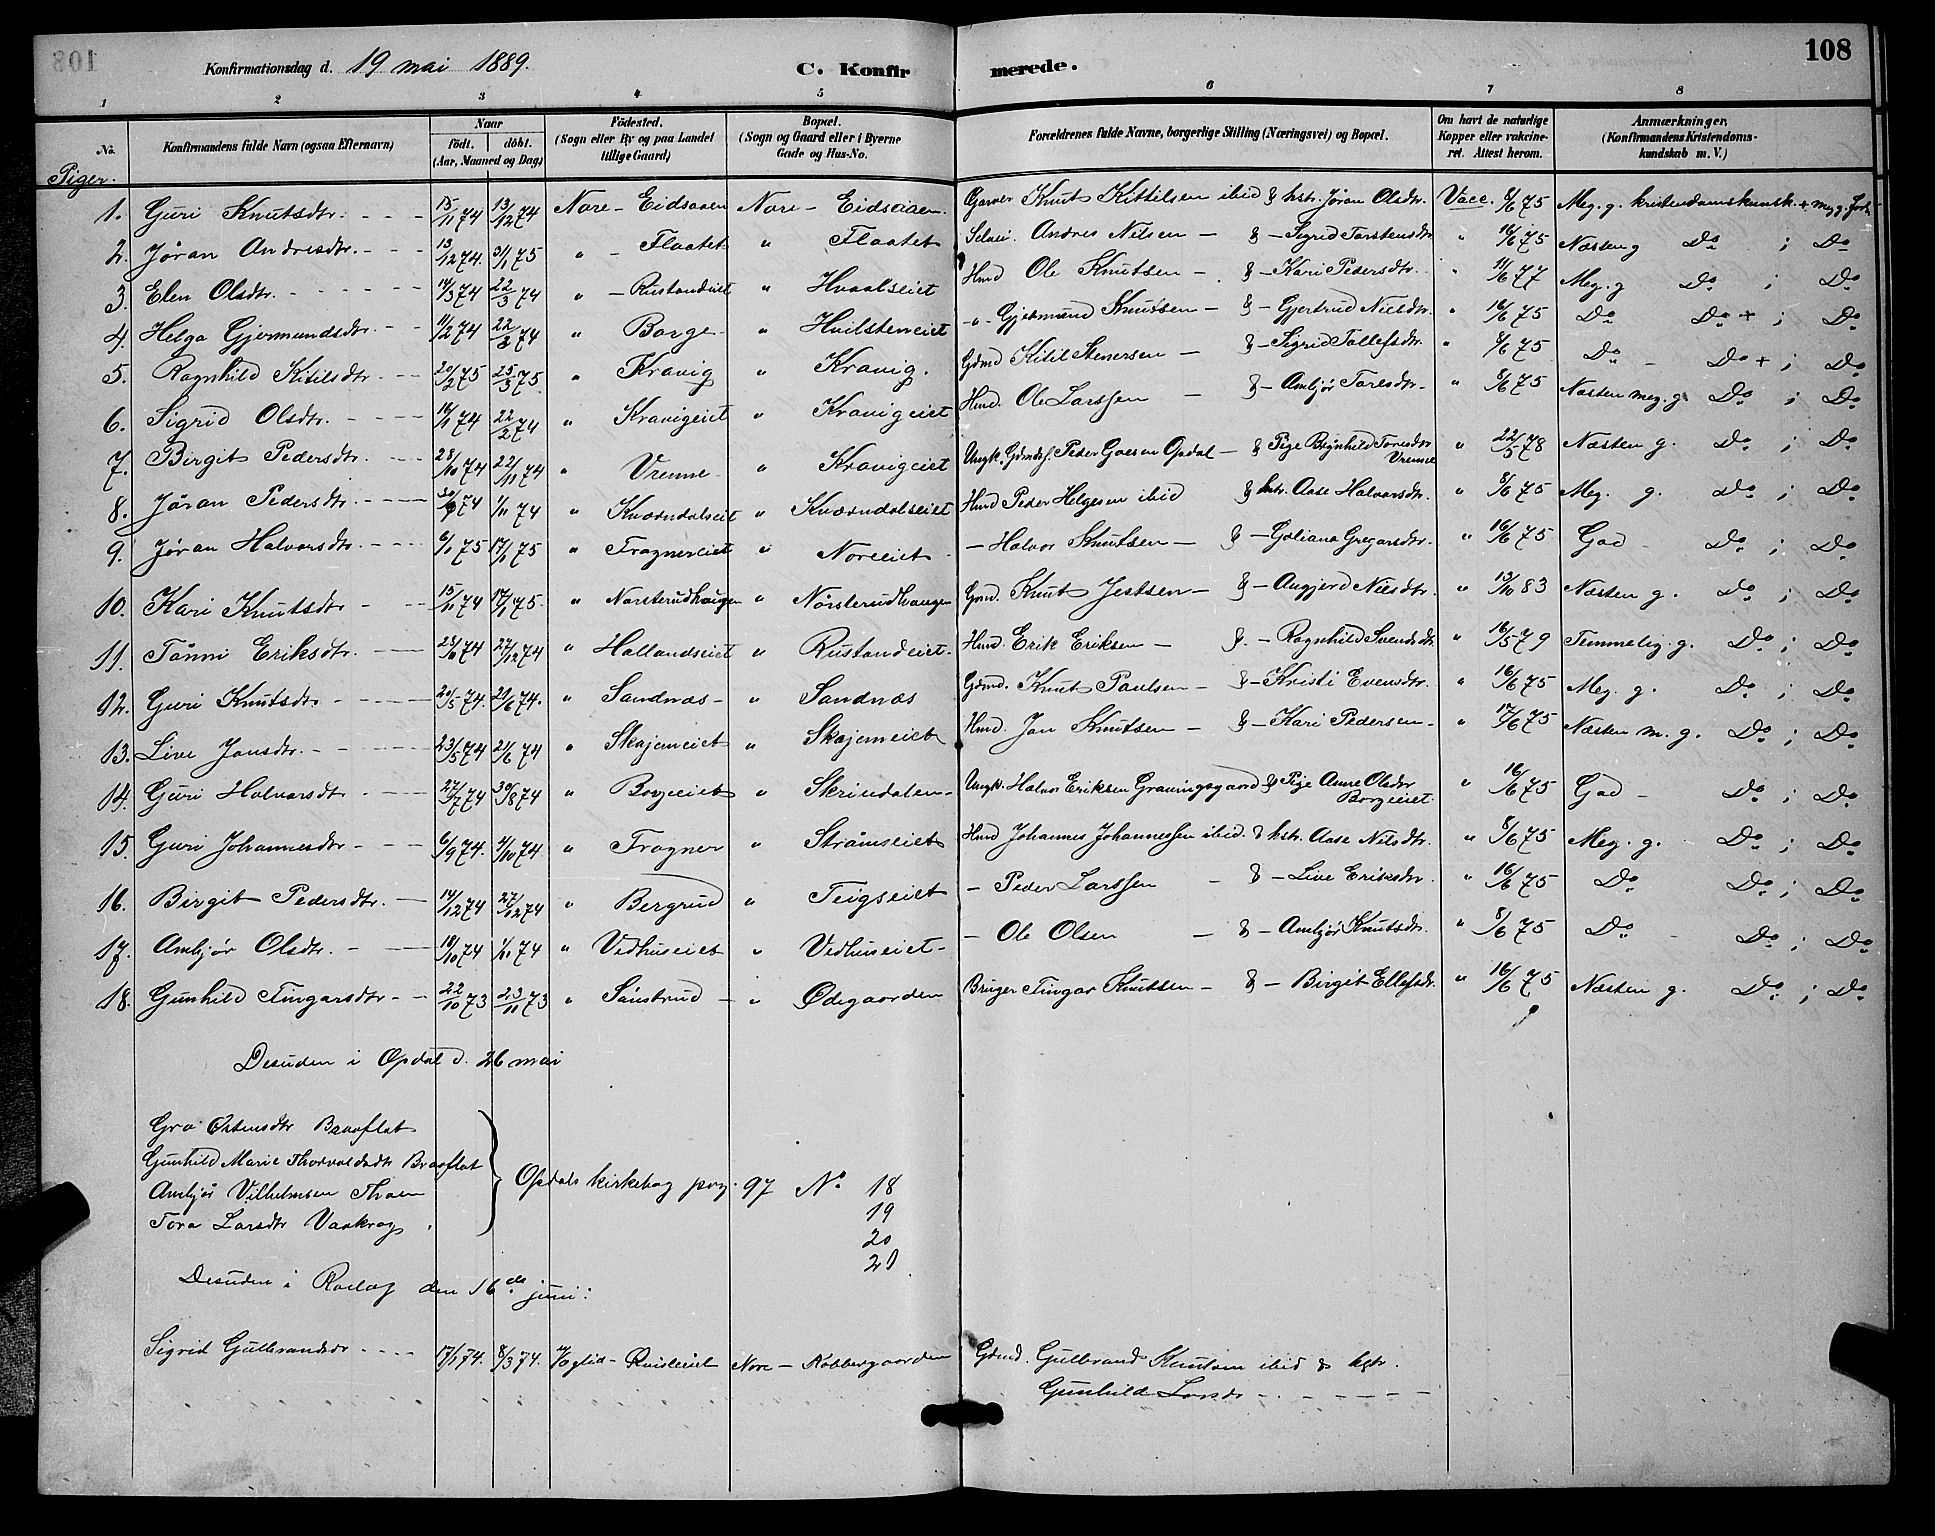 Konfirmationsdag d. 19 mai 1889. C. Konfirmerede. 108
1 2 3 4 5 6 7 8
No. Konfirmandens fulde Navn (ogsaa Efternavn) Naar født. døbt. (Aar, Maaned og Dag) Födested. (Sogn eller By og paa Landet tillige Gaard) Bopæl. (Sogn og Gaard eller i Byerne Gade og Hus-No. Forældrenes fulde Navne, borgerlige Stilling (Næringsvei) og Bopæl. Om havt de naturlige Kopper eller vakcineret. Attest herom. Anmærkninger, (Konfirmandens Kristendomskundskab m. V.)
Piger.
1. Guri Knutsdtr. 15/11 74 13/12 74 Nore - Eidsaaen Nore - Eidsaaen Garver Knut Kittilsen ibid & hstr. Jøran Olsdtr. Vacc. 8/6 75 Meg. g. kristendomskunsk. + meg g. forh.
2. Jøran Andresdtr. 13/12 74. 31/1 75 " - Flaatet " Flaatet Selvei. Andres Nilsen - & - Sigrid Torstensdtr. " 16/6 75 Næsten g Do ; Do
3. Elen Olsdtr. 14/3 74 22/3 74 " - Rustandeiet " Hvaalseiet Hmd Ole Knutsen - & - Kari Pedersdtr. " 11/6 77 Meg. g Do ; Do
4. Helga Gjermundsdtr. 11/2 74 22/3 74 " Borge " Hvilsteneiet -"- Gjermund Knutsen - & - Gjertrud Nilsdtr. " 16/6 75 Do Do + ; Do
5. Ragnhild Kitilsdtr. 20/2 75 25/3 75. " Kravig " Kravig. Gdmd Kitil Stenersen - & - Sigrid Tollefsdtr. " 8/6 75 Do - Do + ; Do
6. Sigrid Olsdtr. 16/1 74 22/2 74 " Kravigeiet " Kravigeiet Hmd. Ole Larssen - & - Ambjør Toresdtr. " 8/6 75 Næsten meg. g. Do ; Do
7. Birgit Pedersdtr. 28/10 74 22/11 74 " Vrenne " Kravigeiet Ungk. Gdmds. Peder Goesen Opdal - & Pige Bignhild Toresdtr Vrenne " 22/5 78 Næsten g. Do ; Do
8. Jøran Pedersdtr. 30/9 74 1/11 74 " Kværndalseiet " Kværndalseiet Hmd Peder Helgesen ibid & hstr. Aase Halvorsdtr. " 8/6 75 Meg. g. Do ; Do
9. Jøran Halvorsdtr. 6/1 75 17/1 75 " Fragnereiet " Noreiet - Halvor Knutsen - & - Goliana Gregarsdtr. " 16/6 75 God - Do ; Do
10. Kari Knutsdtr 15/11 74 17/1 75. " Nørsterudhaugen " Nørsterudhaugen Gdmd. Knut Jestsen - & - Angjerd Nilsdtr. " 13/10 83 Næsten g. Do ; Do
11. Tønni Eriksdtr. 74 27/12 74 " Hallandseiet " Rustandeiet. Hmd. Erik Eriksen - & - Ragnhild Svendsdtr. " 16/5 79 Temmelig. g. Do ; Do
12. Guri Knutsdtr. 20/5 74. 21/6 74. " Sandnæs - " Sandnæs Gdmd. Knut Paulsen - & - Kristi Evensdtr. " 16/6 75 Meg. g. Do ; Do
13. Live Jonsdtr. 23/5 74 21/6 74 " Skjemeiet " Skjemeiet Hmd. Jon Knutsen - & - Kari Pedersen - " 17/6 75 Næsten m. g. Do ; Do
14. Guri Halvorsdtr. 27/7 74 30/8 74 " Borgeeiet " Skrindalen - Ungk. Halvor Eriksen Grauningsgaard & Pige Anne Olsdtr Borgeeiet. " 16/6 75 God - Do ; Do
15. Guri Johannesdtr 6/9 74. 4/10 74. " Fragner " Strømseiet Hmd Johannes Johannessen ibid. & hstr. Aase Nilsdtr. " 8/6 75 Meg. g. Do ; Do
16. Birgit Pedersdtr. 14/12 74 27/12 74 " Bergrud " Teigseiet - Peder Larssen - & - Live Eriksdtr. " 16/6 75 Do Do ; Do
17. Ambjør Olsdtr. 10/10 74 1/11 74 " Vedhuseiet " Vedhuseiet - - Ole Olsen - & - Ambjør Knutsdtr. " 8/6 75 Do - Do ; Do
18. Gunhild Tingarsdtr 22/10 73 23/11 73 " Sønstrud " Ødegaarden Bruger Tingar Knutsen - & - Birgit Ellefsdtr. " 16/6 75 Næsten g. Do ; Do
Desuden i Opdal d. 26 mai
Gro Østensdtr Braaflat
Gunhild Marie Thorvaldsdtr Braaflat
Ambjør Vilhelmsen Thoen
Tora Larsdtr Vaakrag
Opdals kirkebog pag. 97 No 18
19
20
21
Desuden i Rollag den 16de juni:
Sigrid Gulbrandsdtr 17/1 74. 8/3 74. Veglid - Nore - Kobbergaarden Gdmd. Gulbrand Knutsen ibid & hstr.
Gunhild Larsdtr